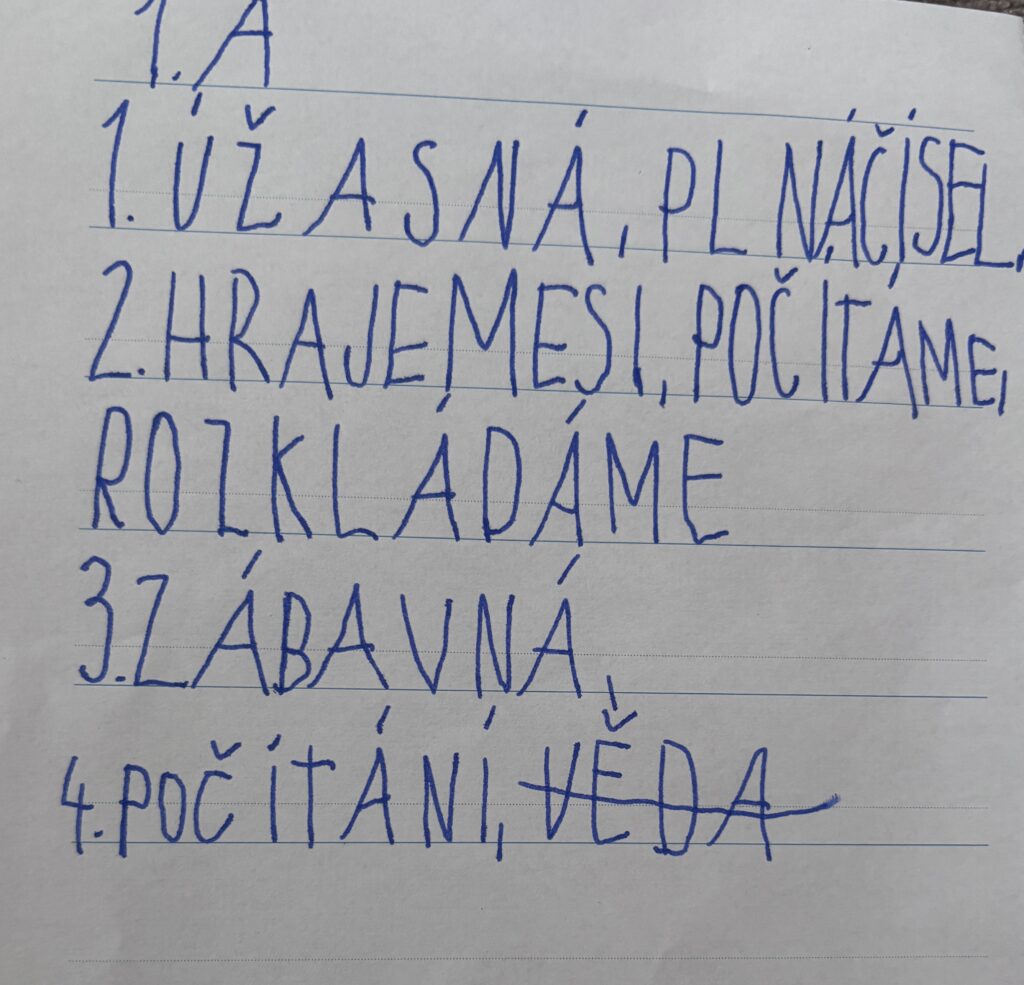 1. A
1. ÚŽASNÁ, PLNÁČÍSEL,
2. HRAJEMESI, POČÍTÁME,
ROZKLÁDÁME
3. ZÁBAVNÁ,
4. POČÍTÁNÍ, VĚDA